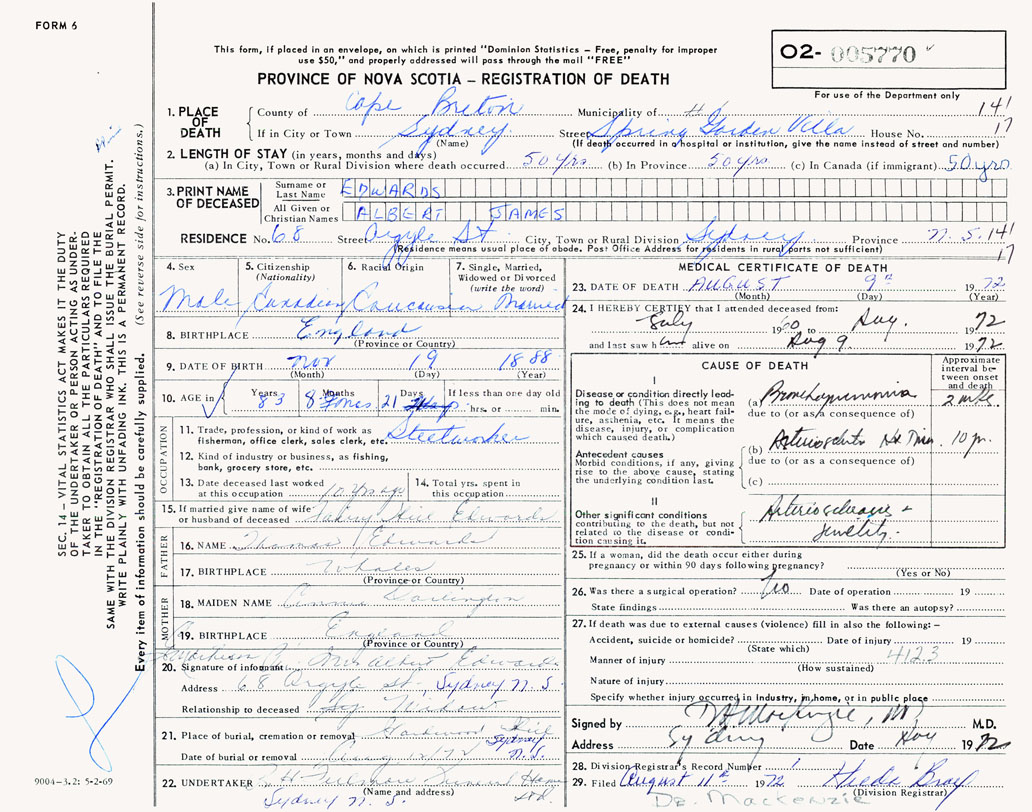 FORM 6
This form, if placed in an envelope, on which is printed "Dominion Statistics – Free, penalty for improper
use $50," and properly addressed will pass through the mail "FREE"
PROVINCE OF NOVA SCOTIA – REGISTRATION OF DEATH
O2- 005770
For use of the Department only
1. PLACE OF DEATH
County of Cape Breton Municipality of 141
If in City or Town Sydney Street Spring Garden Villa House No. 17
(Name) (If death occurred in a hospital or institution, give the name instead of street and number)
2. LENGTH OF STAY (in years, months and days)
(a) In City, Town or Rural Division where death occurred 50 yrs (b) In Province 50 yrs (c) In Canada (if immigrant) 50 yrs
3. PRINT NAME OF DECEASED
Surname or Last Name EDWARDS
All Given or Christian Names ALBERT JAMES
RESIDENCE No. 68 Street Argyle St City, Town or Rural Division Sydney Province N.S. 141
(Residence means usual place of abode. Post Office Address for residents in rural parts not sufficient) 17
4. Sex
Male
5. Citizenship (Nationality)
Canadian
6. Racial Origin
Caucasian
7. Single, Married, Widowed or Divorced (write the word)
Married
8. BIRTHPLACE England
(Province or Country)
9. DATE OF BIRTH Nov 19 1888
(Month) (Day) (Year)
10. AGE in Years Months Days If less than one day old
83 8 21 hrs. or min.
OCCUPATION
11. Trade, profession, or kind of work as fisherman, office clerk, sales clerk, etc. Steelworker
12. Kind of industry or business, as fishing, bank, grocery store, etc.
13. Date deceased last worked at this occupation 10 yrs ago
14. Total yrs. spent in this occupation
15. If married give name of wife or husband of deceased Hill Edwards
FATHER
16. NAME Thomas Edwards
17. BIRTHPLACE Whales
(Province or Country)
MOTHER
18. MAIDEN NAME Annie Darlington
19. BIRTHPLACE England
(Province or Country)
20. Signature of informant Mrs Albert Edwards
Address 68 Argyle St. Sydney N.S.
Relationship to deceased Widow
21. Place of burial, cremation or removal Hardwood Hill
Sydney N.S.
Date of burial or removal Aug 12/72
22. UNDERTAKER Fillmore Funeral Home Ltd.
(Name and address)
Sydney N.S.
MEDICAL CERTIFICATE OF DEATH
23. DATE OF DEATH AUGUST 9th 1972
(Month) (Day) (Year)
24. I HEREBY CERTIFY that I attended deceased from:
July 1960 to Aug. 1972
and last saw him alive on Aug 9 1972
CAUSE OF DEATH
Approximate interval between onset and death
I
Disease or condition directly leading to death (This does not mean the mode of dying, e.g., heart failure, asthenia, etc. It means the disease, injury, or complication which caused death.)
(a) Bronchopneumonia 2 wks.
due to (or as a consequence of)
Antecedent causes
Morbid conditions, if any, giving rise to the above cause, stating the underlying condition last.
(b) 10 yr.
due to (or as a consequence of)
(c)
II
Other significant conditions contributing to the death, but not related to the disease or condition causing it.
Arteriosclerosis +
Senility.
25. If a woman, did the death occur either during pregnancy or within 90 days following pregnancy?
(Yes or No)
26. Was there a surgical operation? No Date of operation 19
State findings Was there an autopsy?
27. If death was due to external causes (violence) fill in also the following: –
Accident, suicide or homicide? Date of injury 19
(State which)
4123
Manner of injury
(How sustained)
Nature of injury
Specify whether injury occurred in industry, in home, or in public place
Signed by D H MacKenzie, MD M.D.
Address Sydney Date 1972
28. Division Registrar's Record Number
29. Filed August 11th 1972 Hilda
(Division Registrar)
Dr. MacKenzie
SEC. 14 – VITAL STATISTICS ACT MAKES IT THE DUTY
OF THE UNDERTAKER OR PERSON ACTING AS UNDER-
TAKER TO OBTAIN ALL THE PARTICULARS REQUIRED
IN THE "REGISTRATION OF DEATH" AND TO FILE THE
SAME WITH THE DIVISION REGISTRAR WHO SHALL ISSUE THE BURIAL PERMIT.
WRITE PLAINLY WITH UNFADING INK. THIS IS A PERMANENT RECORD.
Every item of information should be carefully supplied. (See reverse side for instructions.)
9004-3.2: 5-2-69